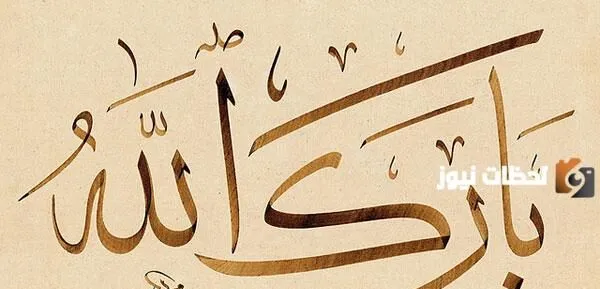 بارك الله
لحظات نيوز